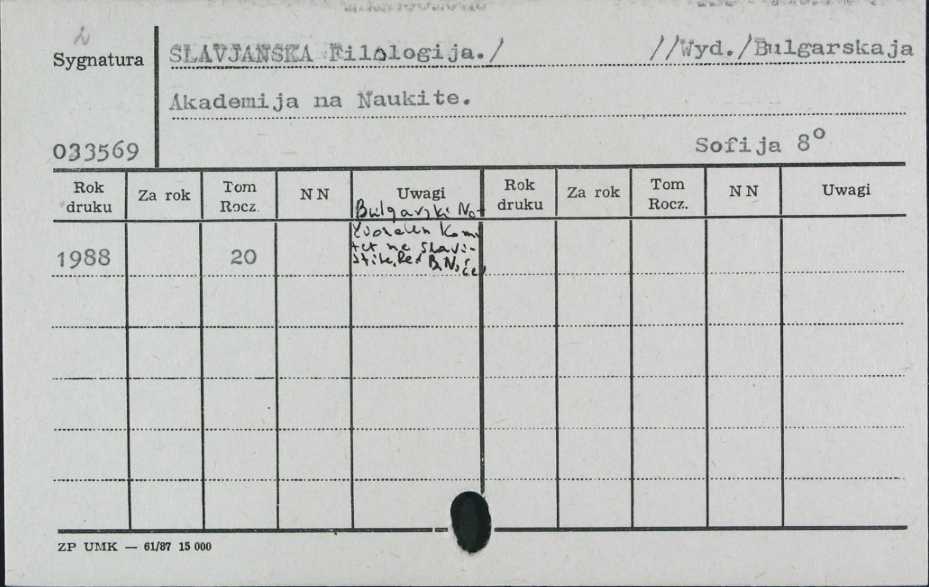 Sygnatura
SLAVJANSKA Filologija./ //Wyd./Bulgarskaja
Akademija na Naukite.
033569
Sofija 8°
Rok druku Za rok Tom Rocz. N N Uwagi Rok druku Za rok Tom Rocz. N N Uwagi
Bulgarski Na-
1988 20
ZP UMK — 61/87 15 000